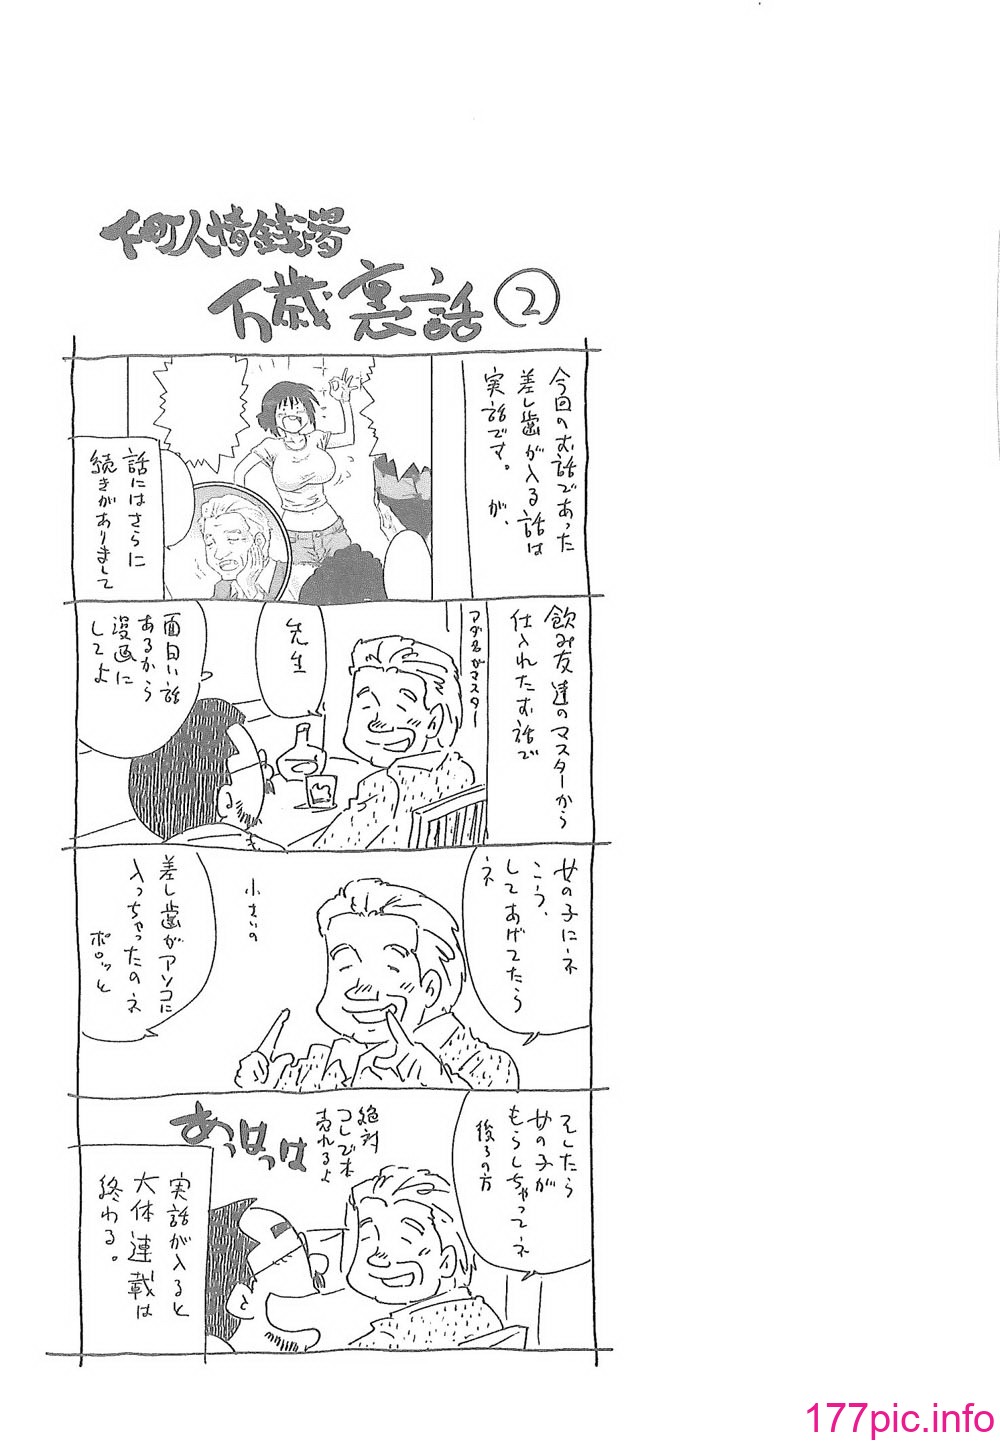 下町人情銭湯
万歳 裏話 2
今回のお話であった
差し歯が入る話は
実話です。が、
話にはさらに
続きがありまして
飲み友達のマスターから
仕入れたお話で
アダ名がマスター
先生
面白い話
あるから
漫画に
してよ
女の子にネ
こう、
してあげてたら
ネ
小さいの
差し歯がアソコに
入っちゃったのネ
ポロッと
そしたら
女の子が
もらしちゃってネ
後ろの方
絶対
コレで本
売れるよ
あっはっは
実話が入ると
大体連載は
終わる。
177pic.info